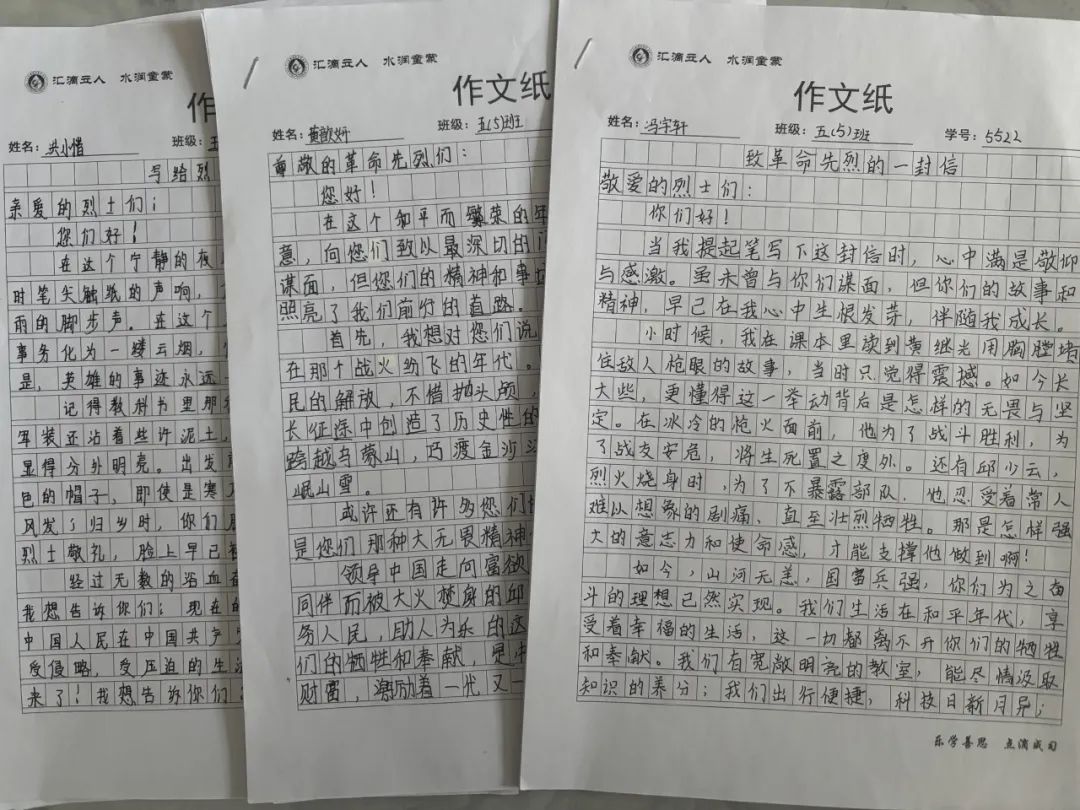 汇滴立人 水润童蒙
作
姓名：洪小惜
班级：五
写给烈
亲爱的烈士们；
您们好！
在这个宁静的夜
时笔尖触纸的声响，
雨的脚步声。在这个
事务化为一缕云烟，
是，英雄的事迹永远
记得教科书里那
军装还沾着些许泥土，
显得分外明亮。出发
色的帽子，即使是寒
风发；归乡时，你们
烈士敬礼，脸上早已
经过无数的浴血奋
我想告诉你们；现在的
中国人民在中国共产
受侵略，受压迫的生活
来了！我想告诉你们
汇滴立人 水润童蒙
作文纸
姓名：黄歆妍
班级：五(5)班
尊敬的革命先烈们：
您好！
在这个和平而繁荣的年
意，向您们致以最深切的
谋面，但您们的精神和事
照亮了我们前行的道路。
首先，我想对您们说
在那个战火纷飞的年代。
民的解放，不惜抛头颅，
长征途中创造了历史性的
跨越乌蒙山，巧渡金沙江
岷山雪。
或许还有许多您们
是您们那种大无畏精神
领导中国走向富欲
同伴而被大火焚身的邱
务人民，助人为乐的这
们的牺牲和奉献，是中
财富，激励着一代又一
汇滴立人 水润童蒙
作文纸
姓名：冯宇轩
班级：五(5)班
学号：5522
致革命先烈的一封信
敬爱的烈士们：
你们好！
当我提起笔写下这封信时，心中满是敬仰
与感激。虽未曾与你们谋面，但你们的故事和
精神，早已在我心中生根发芽，伴随我成长。
小时候，我在课本里读到黄继光用胸膛堵
住敌人枪眼的故事，当时只觉得震撼。如今长
大些，更懂得这一举动背后是怎样的无畏与坚
定。在冰冷的枪火面前，他为了战斗胜利，为
了战友安危，将生死置之度外。还有邱少云，
烈火烧身时，为了不暴露部队，他忍受着常人
难以想象的剧痛，直至壮烈牺牲。那是怎样强
大的意志力和使命感，才能支撑他做到啊！
如今，山河无恙，国富兵强，你们为之奋
斗的理想已然实现。我们生活在和平年代，享
受着幸福的生活，这一切都离不开你们的牺牲
和奉献。我们有宽敞明亮的教室，能尽情汲取
知识的养分；我们出行便捷，科技日新月异；
乐学善思 点滴成句